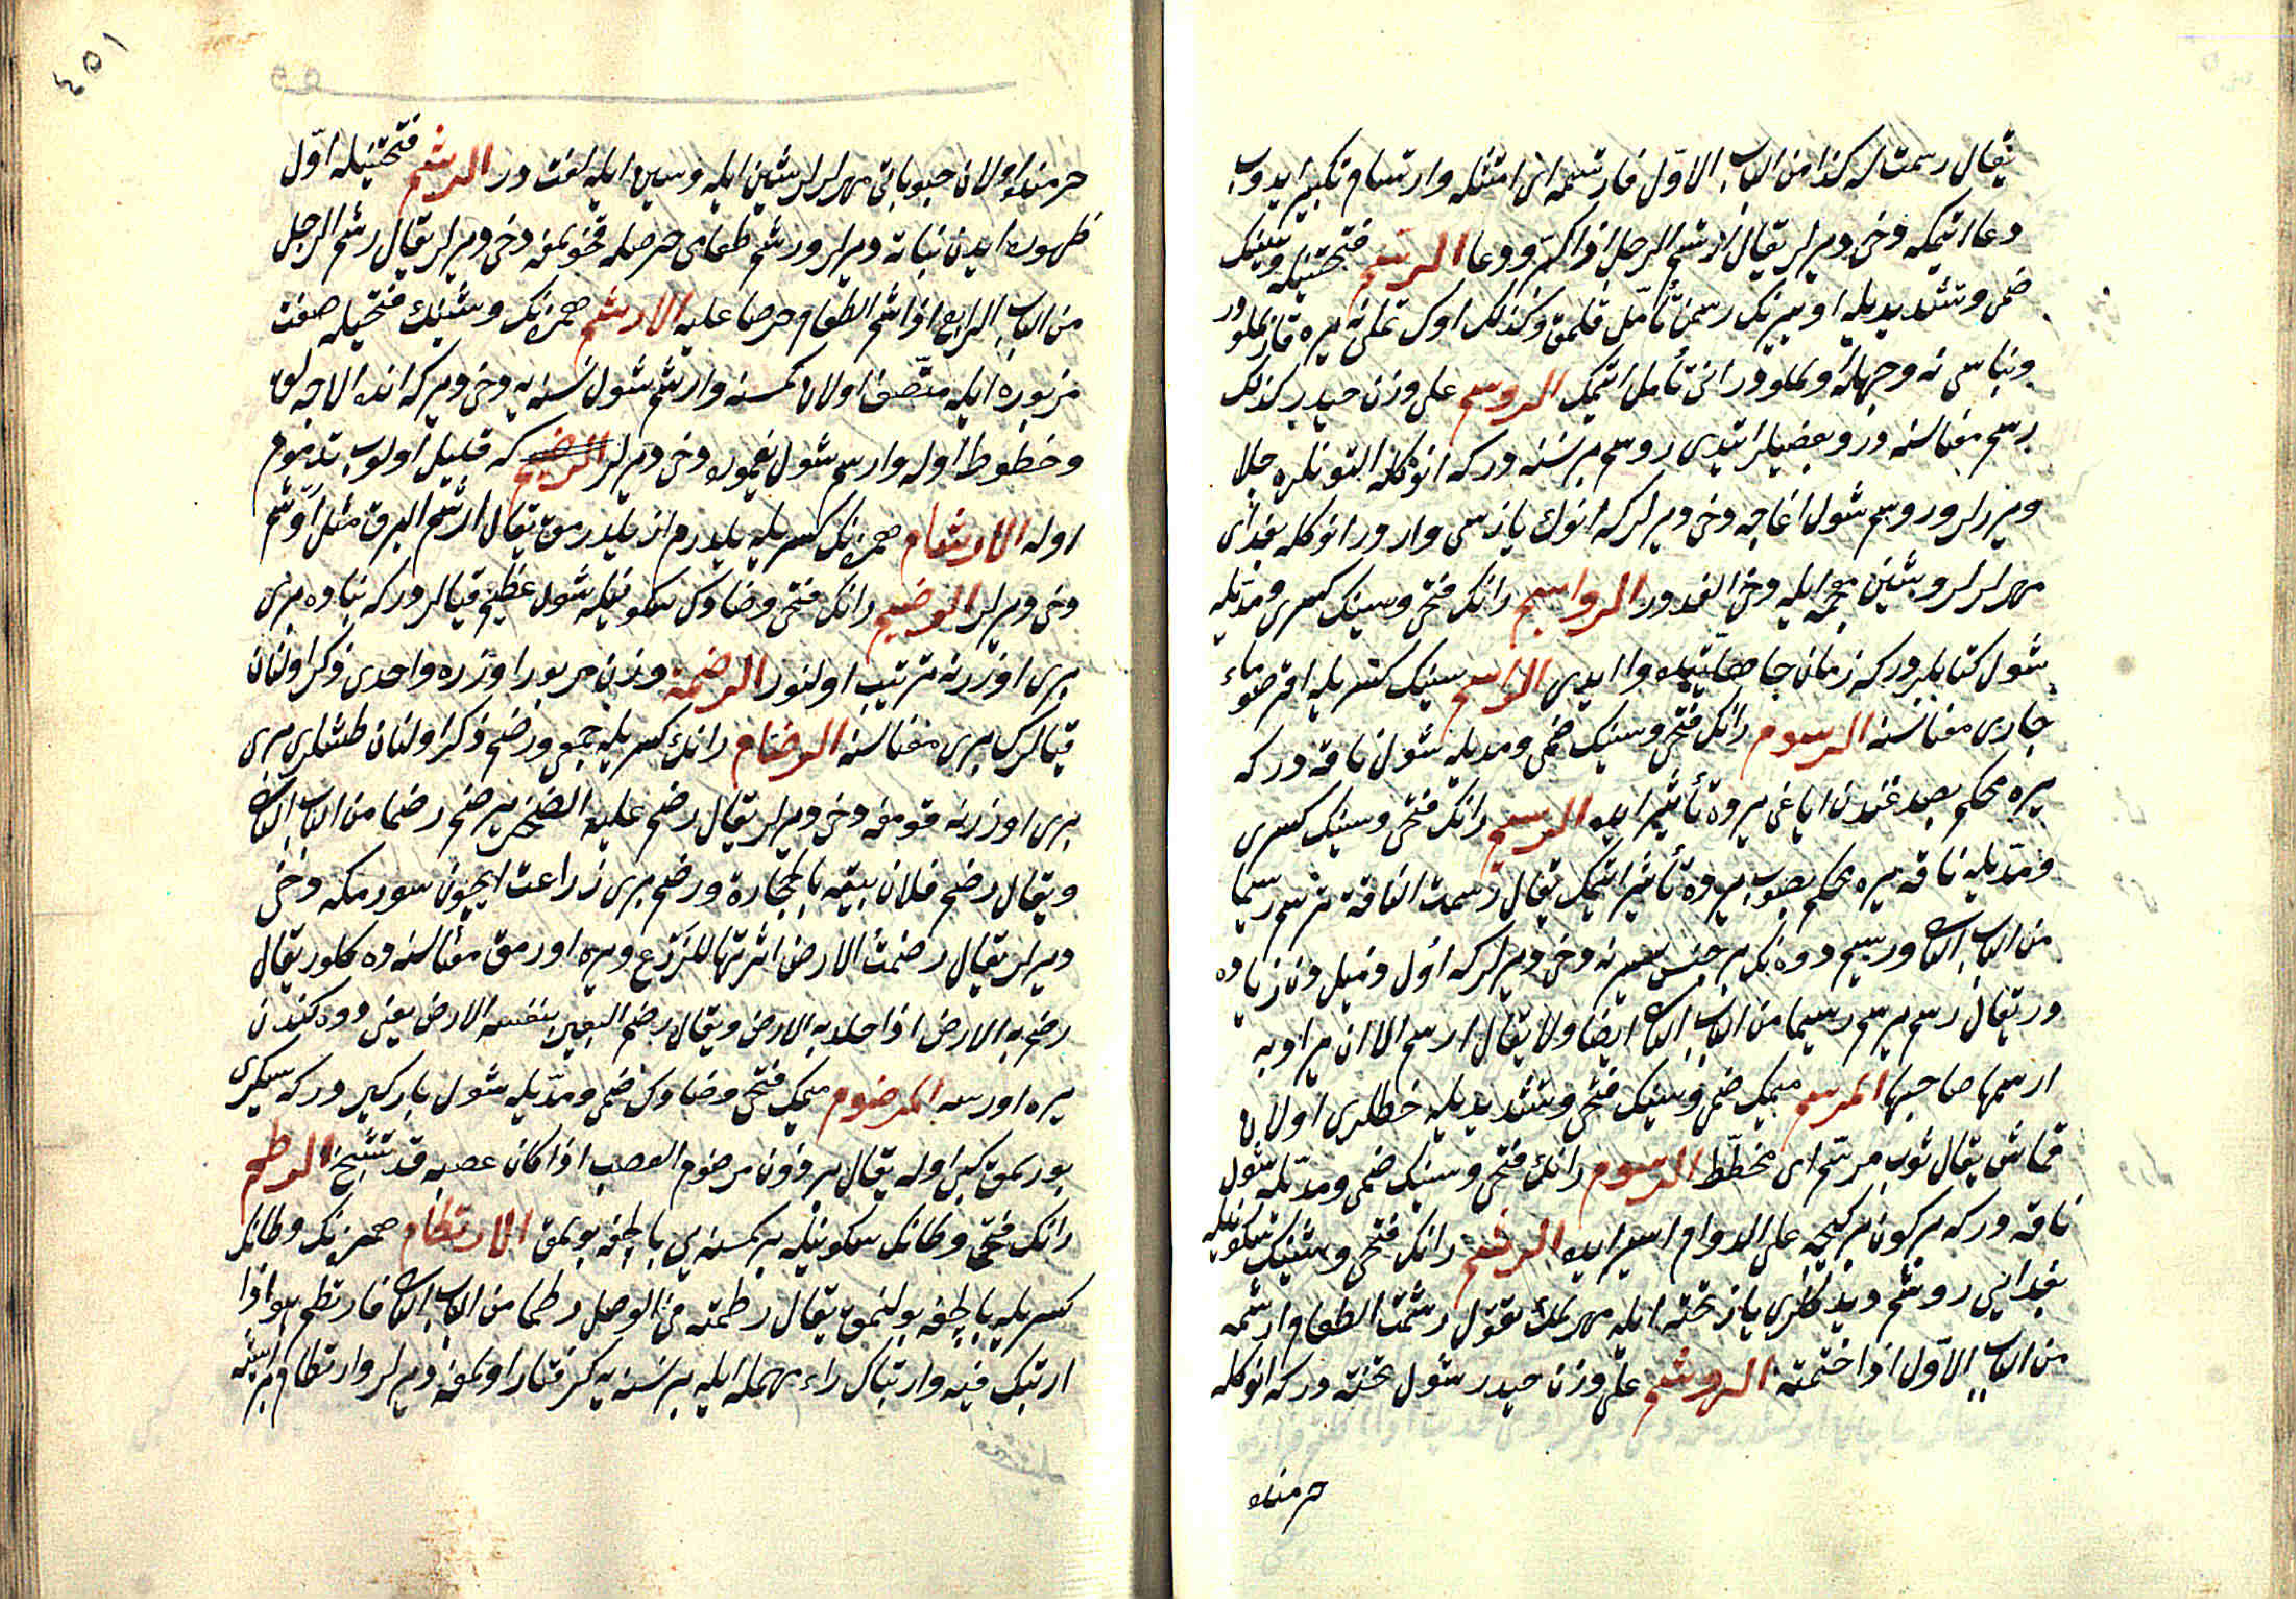 يقال رسمت له كذا من الباب الاول فارتسمه اى امتثله وارتسام تكبير ايدوب
دعا ايتمكه دخى ديرلر يقال ارتسم الرجل اذا كبر ودعا الرسم فتحتيله وسينك
ضمى وتشديديله او يرينك رسمن تأمل قلمق وكذلك اوك تملنى نيره قازيلور
وبناسى نه وجهله اولور انى تأمل ايتمك الروسم على وزن حيدر كذلك
رسم معناسنه در وبعضيلر ايتدى روسم بر نسنه در كه انوكله التونلره جلا
ويررلر وروسم شول اغاجه دخى ديرلر كه انوك يازسى واردر انوكله بغدايى
مهرلرلر وشين معجمه ايله دخى لغتدر الرواسيم رانك فتحى وسينك كسرى ومديله
شول كتابلردر كه زمان جاهليتده وار ايدى الراسم سينك كسريله اقر صو ماء
جارى معناسنه الرسوم رانك فتحى وسينك ضمى ومديله شول ناقه در كه
يره محكم بصدغندن اياغى يرده تأثير ايده الرسيم رانك فتحى وسينك كسرى
ومديله ناقه يره محكم بصوب يرده تأثير ايتمك يقال رسمت الناقة ترسم رسيما
من الباب الثانى ورسيم دوه نك بر جنس سيرينه دخى ديرلر كه اول ذميل دن زياده
در يقال رسم يرسم رسيما من الباب الثانى ايضا ولا يقال ارسم الا ان يراد به
ارسمها صاحبها المرسم ميمك ضمى وسينك فتحى وتشديديله خطلرى اولان
قماش يقال ثوب مرسم اى مخطط الرسوم رانك فتحى وسينك ضمى ومديله شول
ناقه در كه بر كون بر كيجه على الدوام سير ايده الرشم رانك فتحى وشينك سكونيله
بغدايى روشم ديدكلرى يازو تخته ايله مهرلمك تقول رشمت الطعام ارشمه
من الباب الاول اذا ختمته الروشم على وزن حيدر شول تخته در كه انوكله
خرمنده
خرمنده اولان حبوباتى مهرلرلر شين ايله وسين ايله لغت در الرشم فتحتيله اول
ظهور ايدن نباته ديرلر ورشم طعامى حرصله قوقمغه دخى ديرلر يقال رشم الرجل
من الباب الرابع اذا شم الطعام وحرص عليه الارشم همزه نك وشينك فتحيله صفت
مزبوره ايله متصف اولان كمسنه وارشم شول نسنه يه دخى ديرلر كه انده الاجه لق
وخطوط اوله وارسم شول يغموره دخى ديرلر الرضيم كه قليل اولوب مذموم
اوله الارشام همزه نك كسريله يلدرم ازيلدرمق يقال ارشم البرق مثل اوشم
دخى ديرلر الرضم رانك فتحى وضادك سكونيله شول عظيم قيالردر كه بناده برى
برى اوزرنه ترتيب اولنور الرضمة وزن مزبور اوزره واحدى ذكر اولنان
قيالرك برى معناسنه الرضام رانك كسريله جمعى ورضم ذكر اولنان طاشلرى برى
برى اوزرنه قومغه دخى ديرلر يقال رضم عليه الصخر يرضم رضما من الباب الثانى
ويقال رضم فلان بيته بالحجارة ورضم يرى زراعت ايچون سورمكه دخى
ديرلر يقال رضمت الارض اثرتها للزرع ويره اورمق معناسنه ده كلور يقال
رضم به الارض اذا جلد به الارض ويقال رضم البعير بنفسه الارض يعنى دوه كندن
يره اورسه المرضوم ميمك فتحى وضادك ضمى ومديله شول باركير در كه سكيرى
بورلمق كبى اوله يقال برذون مرضوم العصب اذا كان عصبه قد تشنج الرطم
رانك فتحى وطانك سكونيله بر كمسنه يى بالچغه بوئمق الارتطام همزه نك وطانك
كسريله بالچغه بولنمق يقال رطمته فى الوحل رطما من الباب الثانى فارتطم هو اذا
ارتبك فيه وارتباك راء مهمله ايله بر نسنه يه كرفتار اولمغه ديرلر وارتطام بر ايشه